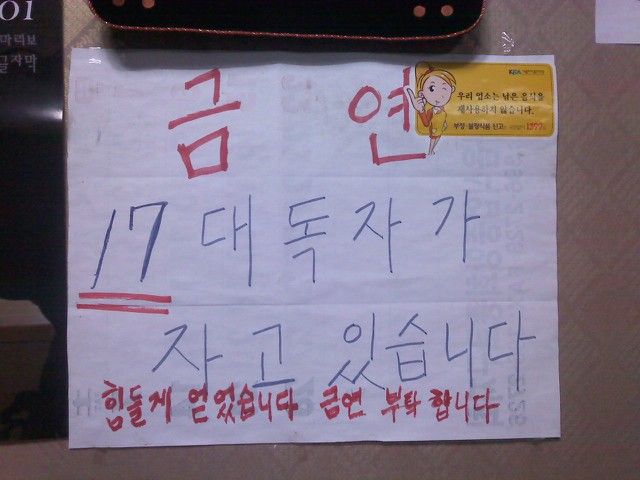 01
마리보
글자막
금 연
우리 업소는 남은 음식을
재사용하지 않습니다.
부정·불량식품 신고는 1399
17대독자가
자고 있습니다
힘들게 얻었습니다 금연 부탁합니다